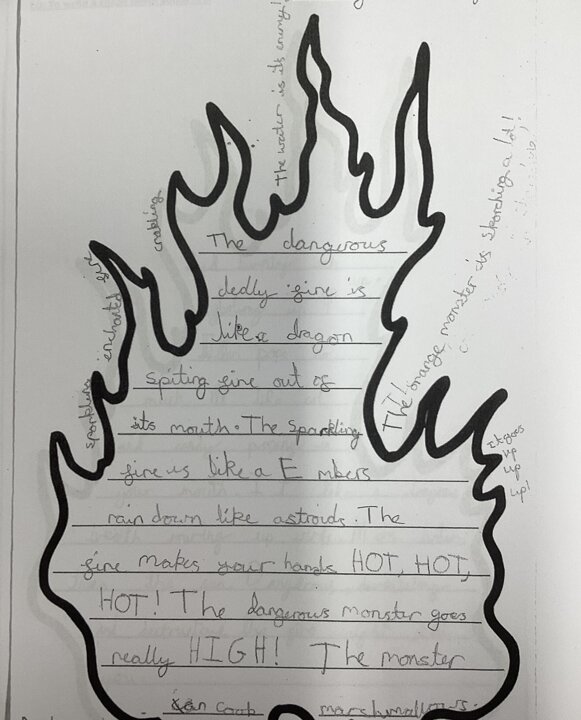 The water is its enemy!
crakling
sparkling enchanted fire
The dangerous
dedly fire is
like a dragon
spiting fire out of
its mouth. The sparkling
fire is like a E mbers
rain down like astroids. The
fire makes your hands HOT, HOT,
HOT! The dangerous monster goes
really HIGH! The monster
can cook marshmallows.
The orange monster is skorching a lot!
It goes
up
up
up!